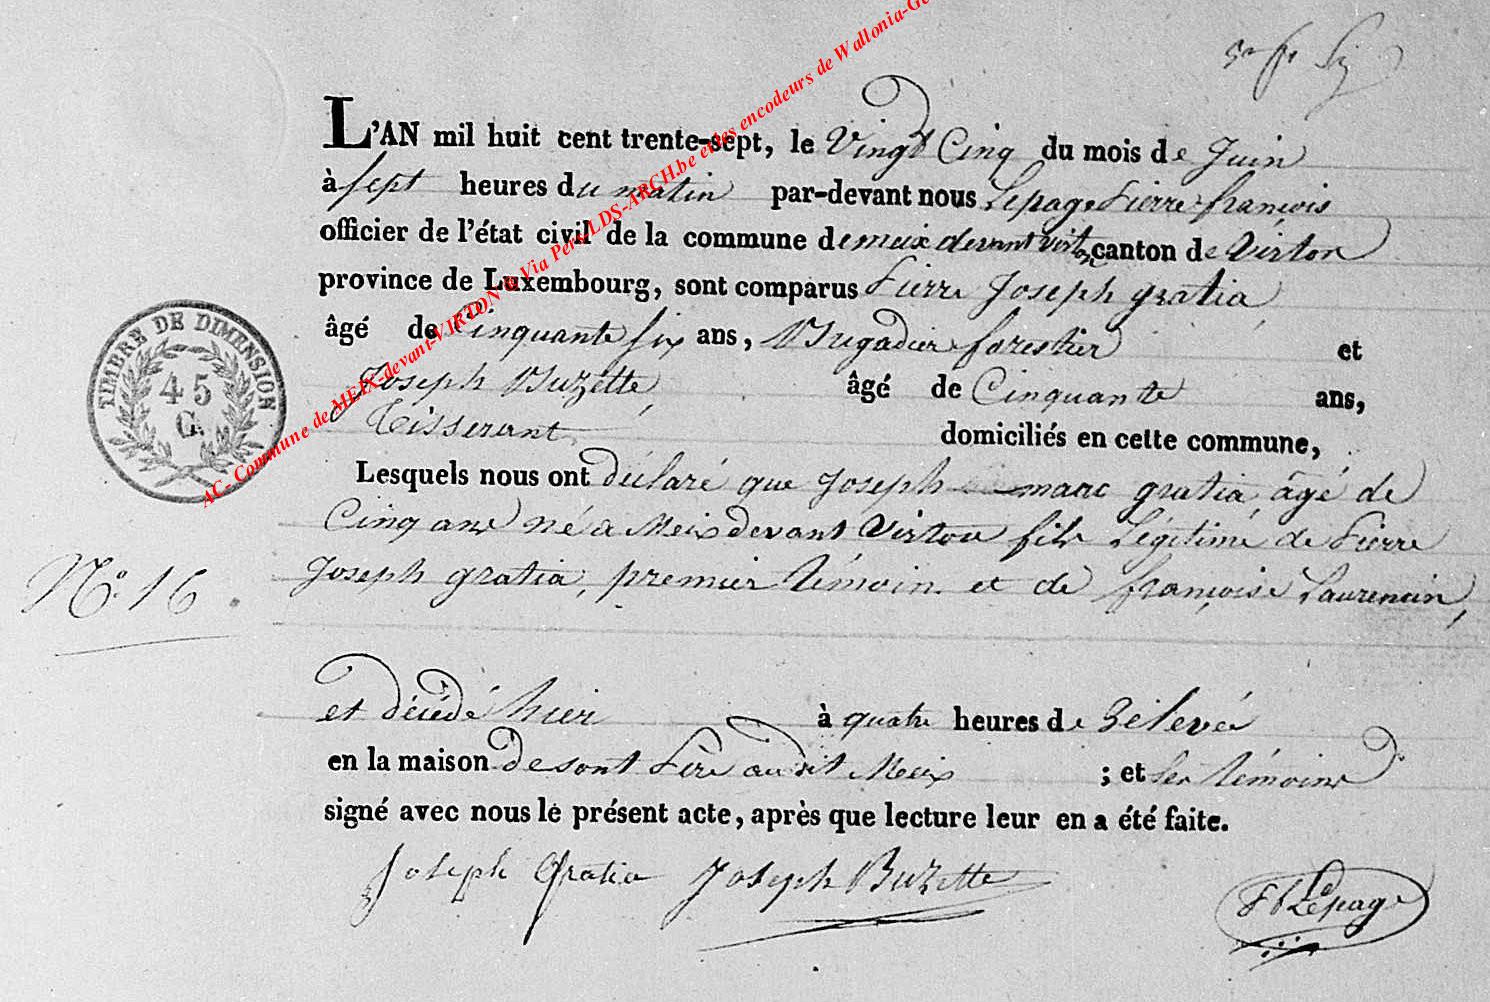 L'AN mil huit cent trente-sept, le Vingt Cinq du mois de Juin
à sept heures du matin par-devant nous Lepage Pierre françois
officier de l'état civil de la commune de meix devant virton canton de Virton
province de Luxembourg, sont comparus Pierre Joseph gratia,
âgé de Cinquante six ans, Brigadier forestier et
Joseph Buzette, âgé de Cinquante ans,
Tisserant, domiciliés en cette commune,
Lesquels nous ont déclaré que Joseph marc gratia, âgé de
Cinq ans né a Meix devant Virton fils Légitime de Pierre
Joseph gratia, premier témoin et de françoise Laurencin,
et décédé hier à quatre heures de Rélevée
en la maison de sont Père au dit Meix ; et les témoins
signé avec nous le présent acte, après que lecture leur en a été faite.
Joseph Gratia Joseph Buzette
F P Lepage
N.° 16
TIMBRE DE DIMENSION
45
G.
AC- Commune de MEIX-devant-VIRTON @ Via Pers/LDS-ARCH.be et les encodeurs de Wallonia-Ge